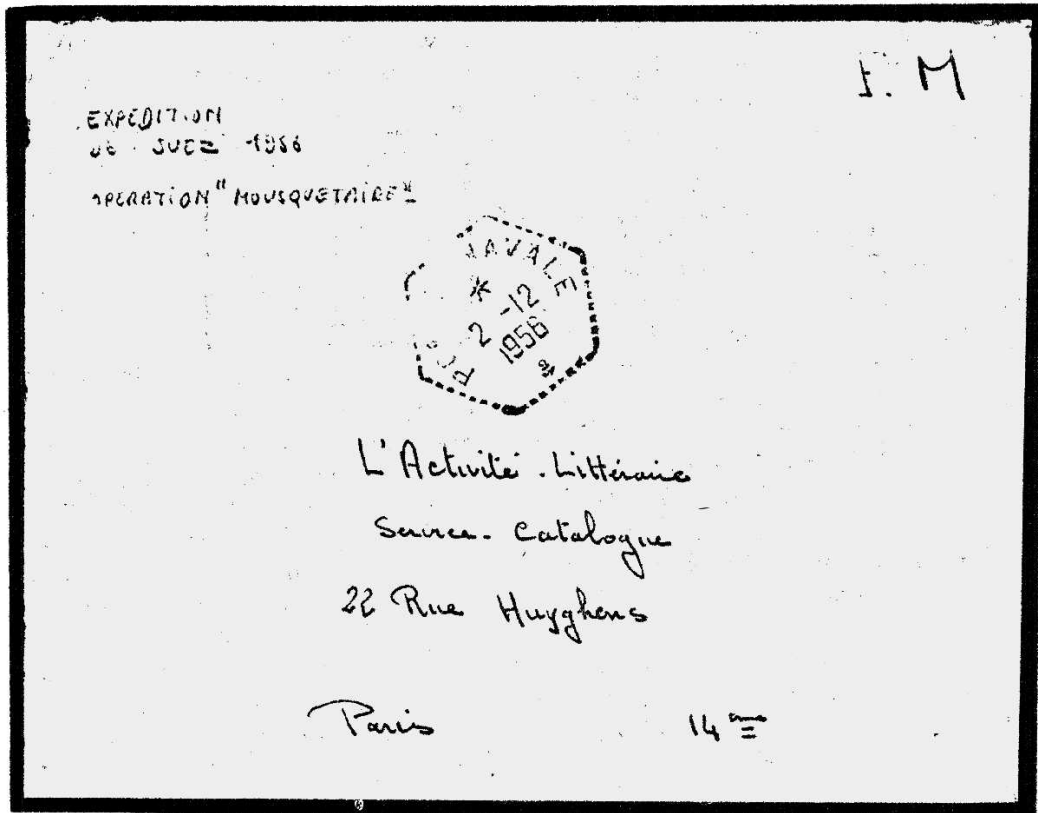 F. M
EXPEDITION
DE SUEZ 1956
OPERATION "MOUSQUETAIRE"
NAVALE
2 -12
1956
L'Activité Littéraire
Service Catalogue
22 Rue Huyghens
Paris 14 eme